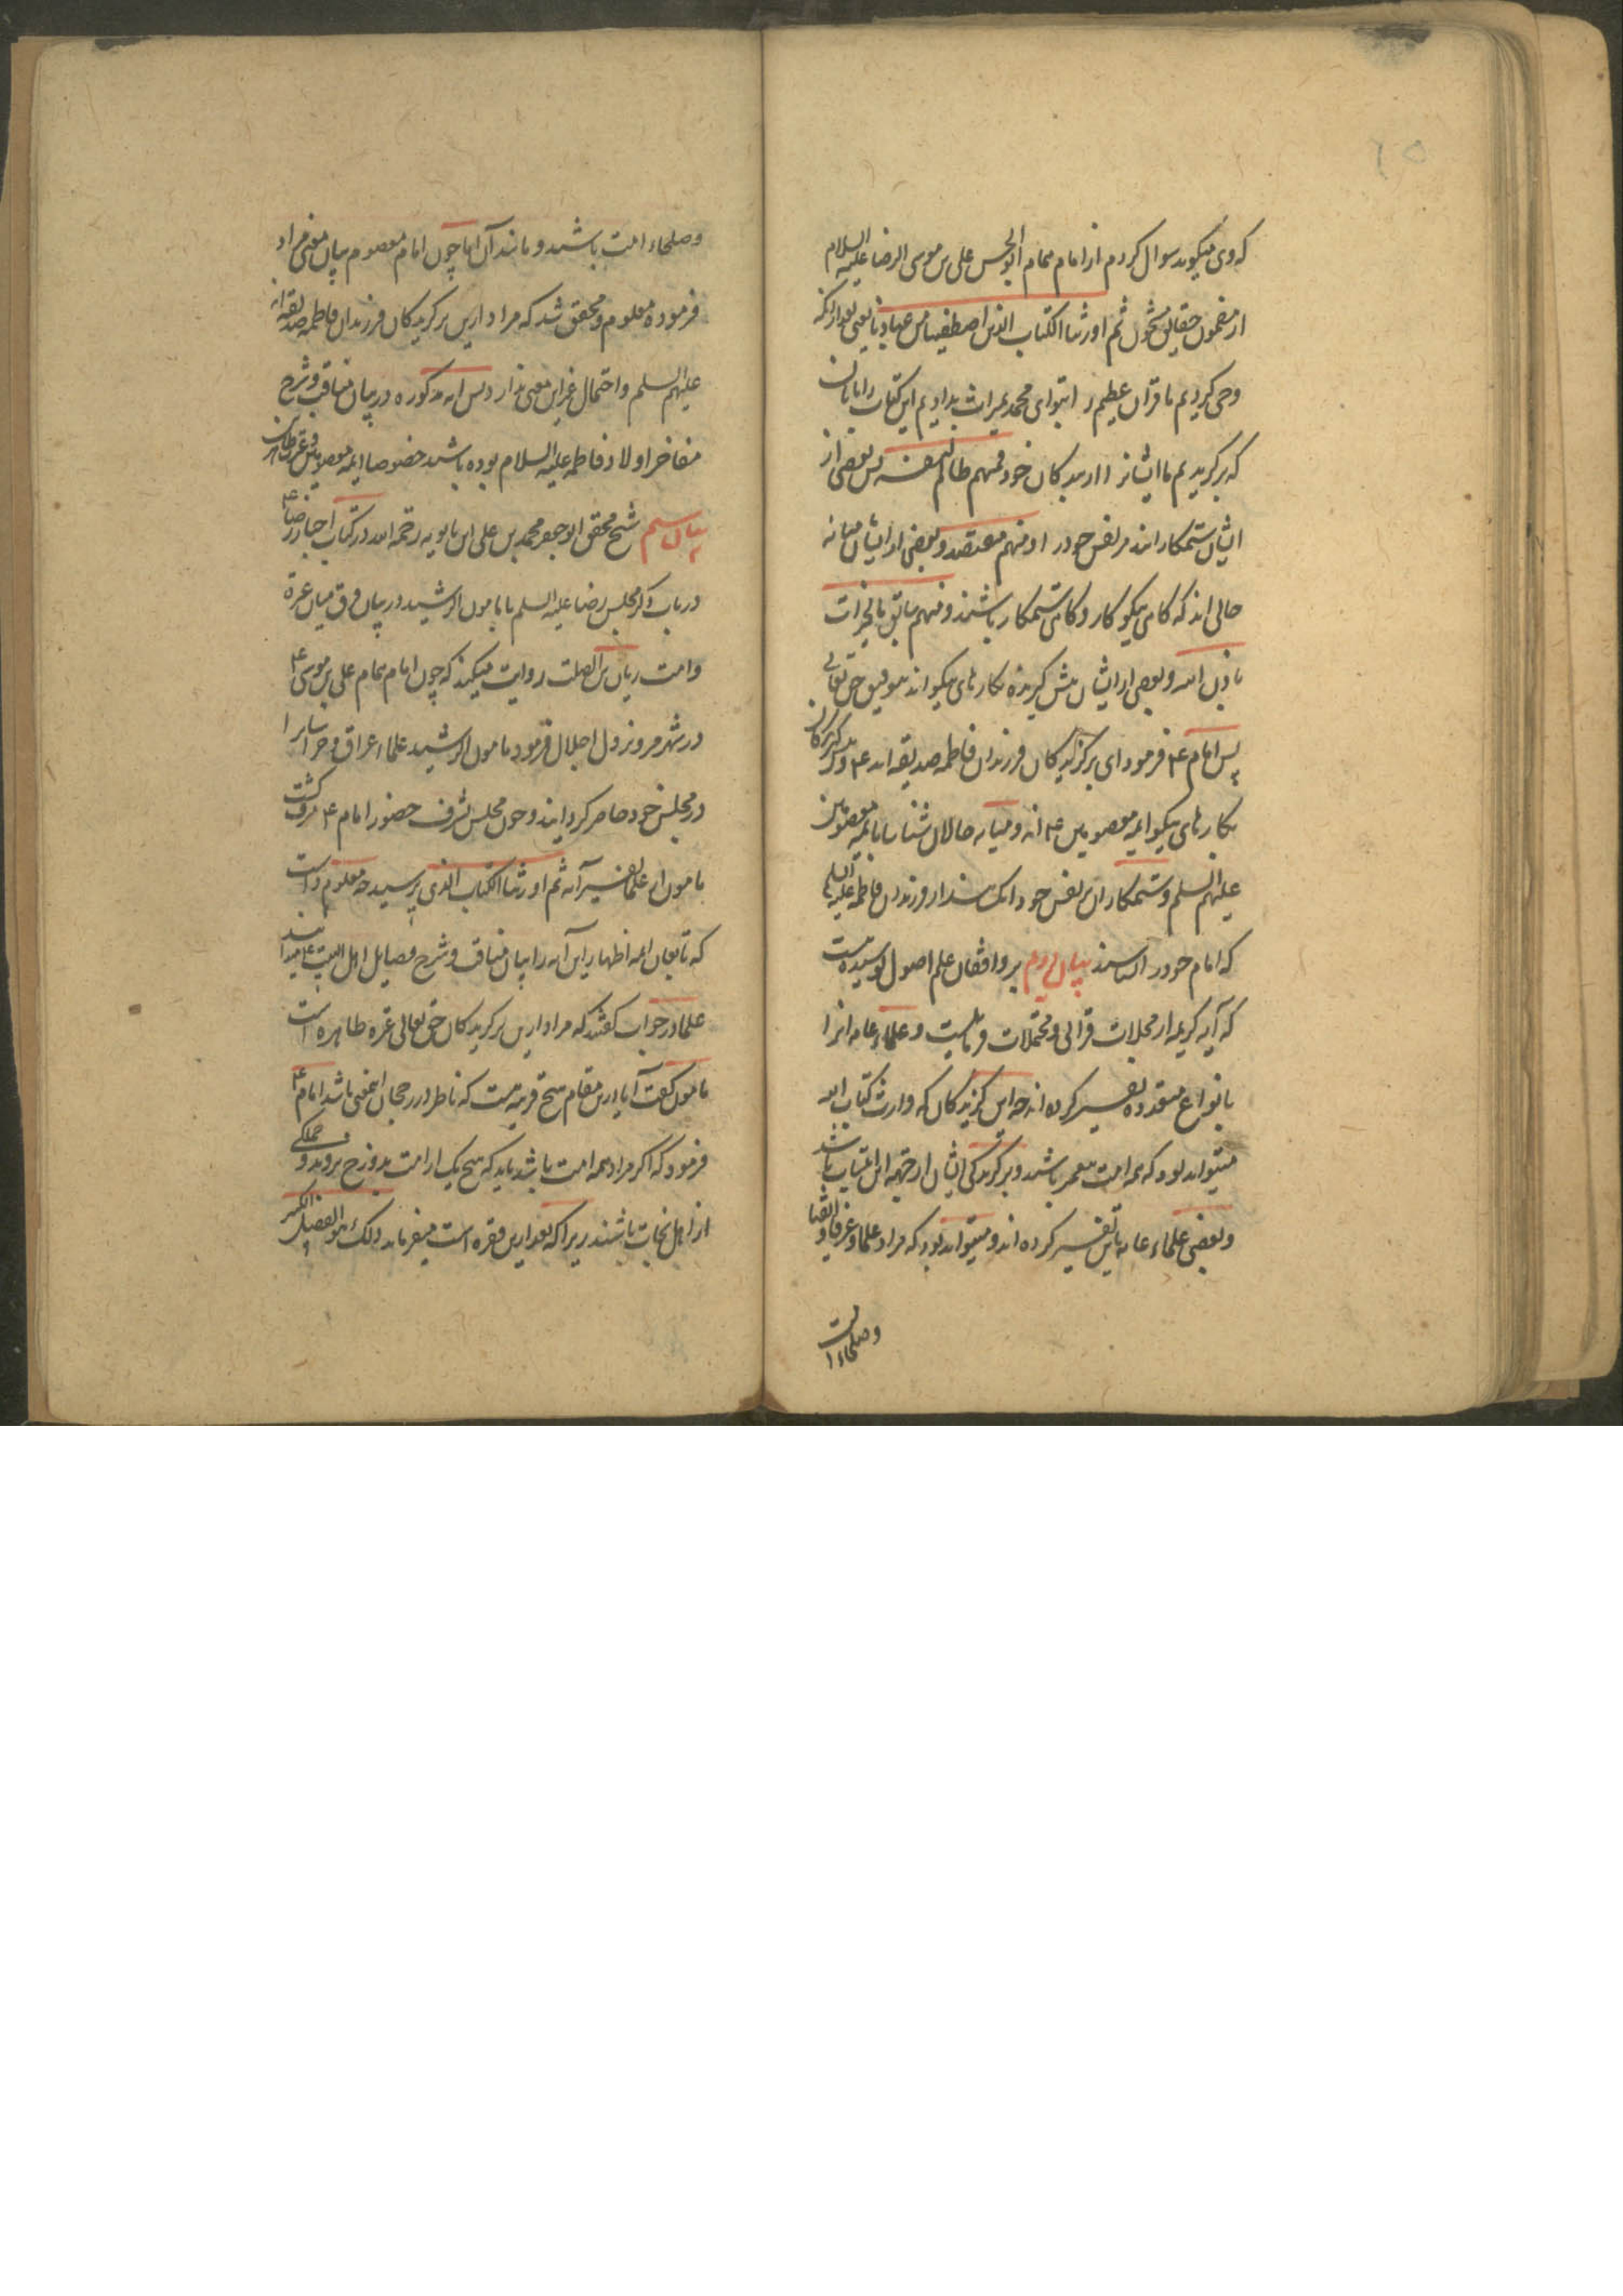 ۲۵
که وی میگوید سوال کردم از امام همام ابو الحسن علی بن موسی الرضا علیه السلام
از مضمون حقایق مشحون ثم اورثنا الکتاب الذین اصطفینا من عبادنا یعنی بعد از آنکه
وحی کردیم ما قرآن عظیم را بتو ای محمد میراث بدادیم این کتاب را بآنان
که برگزیدیم ما ایشانرا از بندگان خود فمنهم ظالم لنفسه پس بعضی از
ایشان ستمکارانند مر نفس خود را و منهم مقتصد و بعضی از ایشان میانه
حالی اند که گاهی نیکوکار و گاهی ستمکار باشند و منهم سابق بالخیرات
باذن الله و بعضی از ایشان پیش گیرنده بکارهای نیکو اند بتوفیق حق تعالی
پس امام ع فرمود ای برگزیدگان فرزندان فاطمه صدیقه اند ع و
بکارهای نیکو ایمه معصومین ع اند و میانه حالان شناسا بایمه معصومین
علیهم السلم و ستمکاران بر نفس خود آنک سند از فرزندان فاطمه علیها السلم
که امام خود را نشناسند بیان دویم بر واقفان علم اصول پوشیده نیست
که آیه کریمه از مجملات قرآنی و محتملات فرقانیست و علماء عامه آنرا
بانواع متعدده تفسیر کرده اند چه این گزیدگان که وارث کتاب الله
میتواند بود که همه امت پیغمبر باشند و برگزیدگی ایشان از جهة این انتساب باشد
و بعضی علماء عامه باین تفسیر کرده اند و میتواند بود که مراد علما و عرفا و اتقیا
و صلحاء امت
و صلحاء امت باشند و مانند آن اما چون امام معصوم بیان معنی مراد
فرموده معلوم و محقق شد که مراد ازین برگزیدگان فرزندان فاطمه صدیقه اند
علیهم السلم و احتمال غیر این معنی ندارد پس آیه مذکوره در بیان مناقب و شرح
مفاخر اولاد فاطمه علیها السلام بوده باشد خصوصا ایمه معصومین و عترت طاهرین
بیان سیم شیخ محقق ابو جعفر محمد بن علی ابن بابویه رحمه الله در کتاب اخبار رضا ع
در باب ذکر مجلس رضا علیه السلم با مامون الرشید در بیان فرق میان عترة
و امت ریان بن الصلت روایت میکند که چون امام همام علی بن موسی ع
در شهر مرو نزول اجلال فرمود مامون الرشید علماء عراق و خراسانرا
در مجلس خود حاضر گردانید و چون مجلس بشرف حضور امام ع مشرف گشت
مامون از علما تفسیر آیه ثم اورثنا الکتاب الذی پرسید چه معلوم داشت
که تابعان ایمه اظهار این آیه را بیان مناقب و شرح فضایل اهل البیت ع میدانند
علما در جواب گفتند که مراد ازین برگزیدگان حق تعالی عترة طاهره است
مامون گفت آیا ازین مقام هیچ قرینه هست که ناظر در رجحان اینمعنی باشد امام ع
فرمود که اگر مراد همه امت باشد باید که هیچ یک از امت بدوزخ نروند و جملگی
از اهل نجات باشند زیرا که بعد ازین فقره است میفرماید ذلک هو الفضل الکبیر